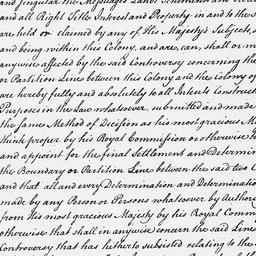 and singular the Messuages Lands Tenements and Here
and all Right Title Interest and Property in and to the s
are held or claimed by any of His Majesty's Subjects,
and being within this Colony, and are, can, shall or m
anywise affected by the said Controversy concerning the
or Partition Line between this Colony and the Colony of
are hereby fully and absolutely to all Intents Construct
Purposes in the Law whatsoever, submitted and made
the same Method of Decision as his most gracious Ma
think proper by his Royal Commission or otherwise to
and appoint for the final Settlement and Determin
the Boundary or Partition Line between the said two C
and that all and every Determination and Determinatio
made by any Person or Persons whatsoever by Author
from His most gracious Majesty by his Royal Comm
otherwise that shall in anywise concern the said Lines
Controversy that has hitherto subsisted relating to the